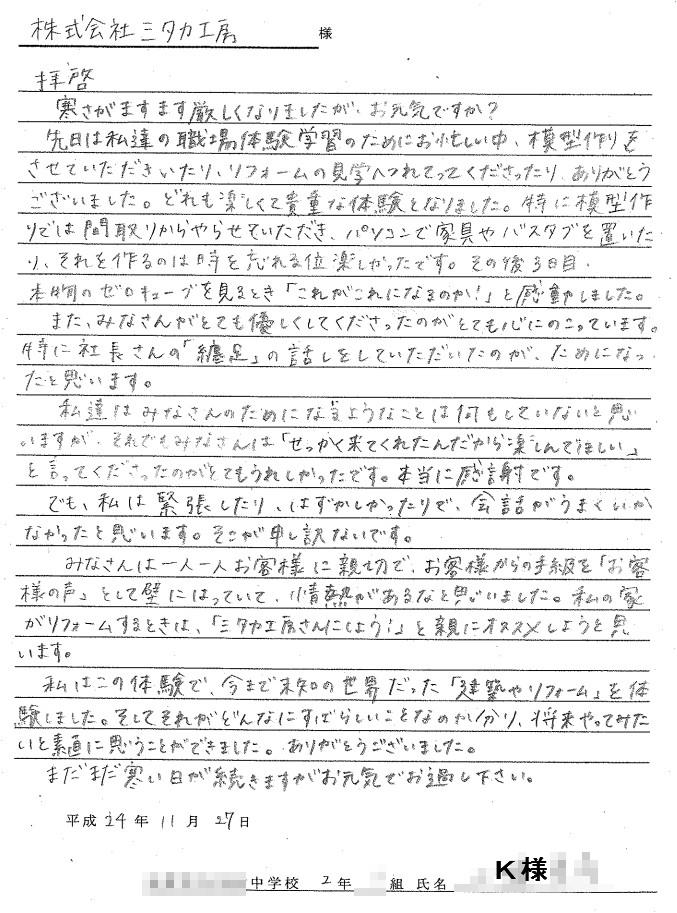 株式会社ミタカ工房 様
拝啓
寒さがますます厳しくなりましたが、お元気ですか?
先日は私達の職場体験学習のためにお忙しい中、模型作りを
させていただきいたり、リフォームの見学へつれてってくださったり、ありがとう
ございました。どれも楽しくて貴重な体験となりました。特に模型作
りでは間取りからやらせていただき、パソコンで家具やバスタブを置いた
り、それを作るのは時を忘れる位楽しかったです。その後3日目、
本物のゼロキューブを見るとき「これがこれになるのか!」と感動しました。
また、みなさんがとても優しくしてくださったのがとても心にのこっています。
特に社長さんの「纏足」の話しをしていただいたのが、ためになっ
たと思います。
私達はみなさんのためになるようなことは何もしていないと思
いますが、それでもみなさんは「せっかく来てくれたんだから楽しんでほしい」
と言ってくださったのがとてもうれしかったです。本当に感謝です。
でも、私は緊張したり、はずかしかったりで、会話がうまくいか
なかったと思います。そこが申し訳ないです。
みなさんは一人一人お客様に親切で、お客様からの手級を「お客
様の声」として壁にはっていて、情熱があるなと思いました。私の家
がリフォームするときは、「ミタカ工房さんにしよう!」と親にオススメしようと思
います。
私はこの体験で、今まで未知の世界だった「建築やリフォーム」を体
験しました。そしてそれがどんなにすばらしいことなのか分り、将来やってみた
いと素直に思うことができました。ありがとうございました。
まだまだ寒い日が続きますがお元気でお過し下さい。
平成24年11月27日
中学校 2年 組 氏名 K様